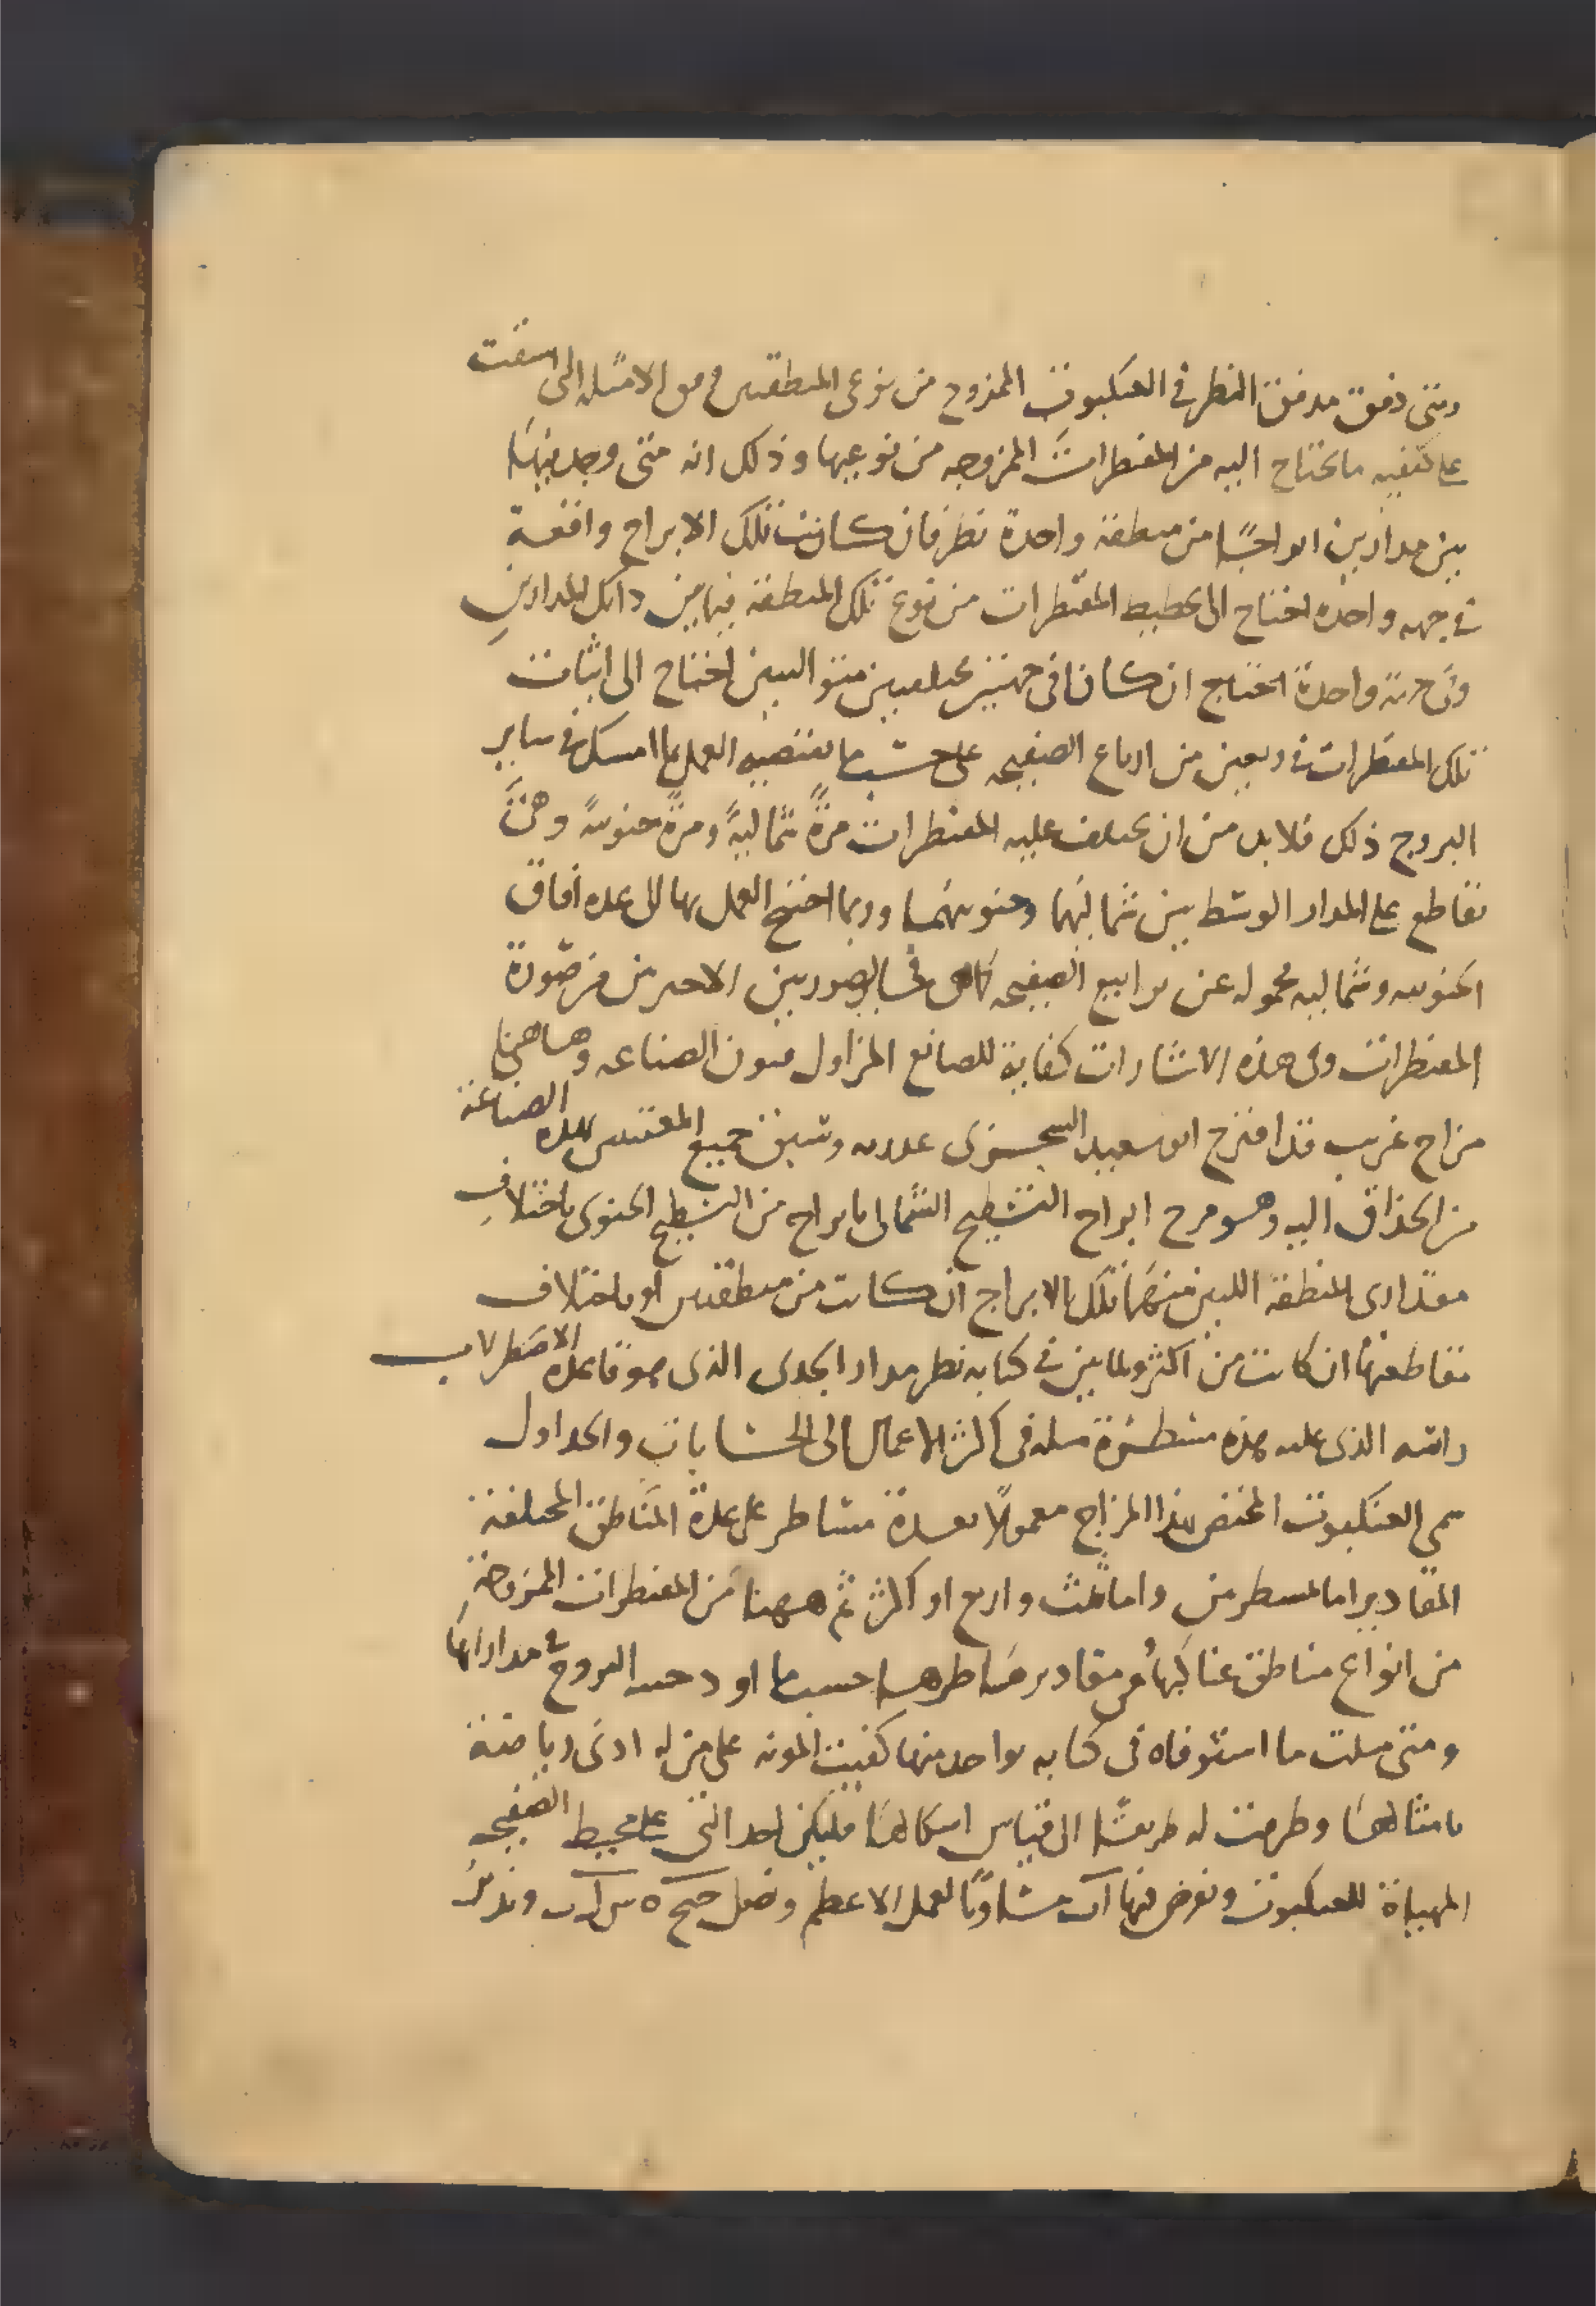 ومتى دقق مدقق النظر في العنكبوت الممزوج من نوعى المنطقتين من الامثله التى اسقت
على كيفيه ما يحتاج اليه من المقنطرات الممزوجه من نوعيها وذلك انه متى وجد فيها
بين مدارين ابراجًا من منطقة واحدة نظر فان كانت تلك الابراج واقعة
في جهه واحده احتاج الى تخطيط المقنطرات من نوع تلك المنطقة فيما بين ذانك المدارين
وفى جهة واحدة احتاج ان كانا فى جهتين مختلفتين متواليتين احتاج الى اثبات
تلك المقنطرات في ربعين من ارباع الصفيحه على حسب ما يقتضيه العمل بها في ساير
البروج ذلك فلابد من ان يختلف عليه المقنطرات مرةً شماليةً ومرةً جنوبيةً وهى
تقاطع على المدار الوسط بين شماليها وجنوبيها وربما احتيج العمل بها الى عده آفاق
الجنوبيه وشماليه محموله عن ترابيع الصفيحه كما فى الصورتين الاخيرتين من صورة
المقنطرات وفى هذه الاشارات كفاية للصانع المزاول فنون الصناعه وهاهنا
مزاج غريب قد اقترح ابو سعيد السجزى وسبق جميع المفتنين بهذه الصناعة
من الحذاق اليه وهو مزج ابراج التسطيح الشمالى بابراج من التسطيح الجنوبى باختلاف
مقدارى المنطقة اللتين منهما تلك الابراج ان كانت من منطقتين او باختلاف
تقاطعها ان كانت من اكثر ولما بين في كتابه نظر مدار الجدى الذى هو قاعدة الاصطرلاب
الذى عليه هذه مسطرة مثله فى اكثر الاعمال الى الحسابات والجداول
سمى العنكبوت المختص بهذا المزاج معمولًا بعدة مساطر على عدة المناطق المختلفة
المقادير اما لمسطرتين واما ثلث واربع او اكثر ثم ههنا من المقنطرات الممزوجة
من انواع مناطق عناكبها ومقادير مساطرها حسبما اوجبه البروج في مداراتها
ومتى مثلت ما استوفاه فى كتابه بواحد منها كفيت المونه على من له ادنى رياضة
بامثالها وطرقت له طريقًا الى قياس اشكالها فليكن احد التى على محيط الصفيحه
المهياة للعنكبوت ونفرض فيها آب مساويًا للميل الاعظم ونصل